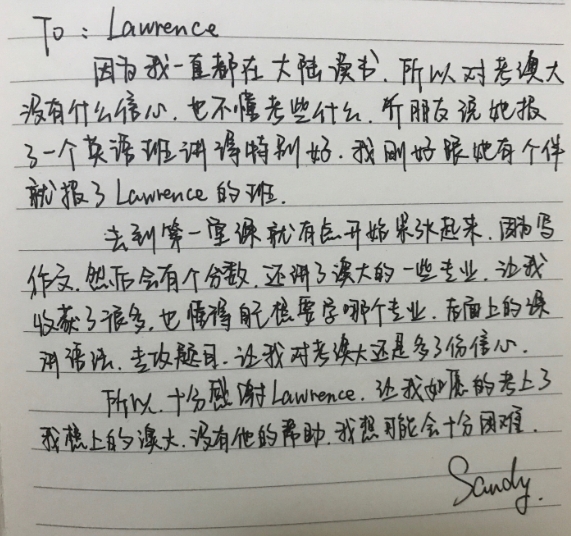 To: Lawrence
因为我一直都在大陆读书，所以对考澳大
没有什么信心，也不懂考些什么，听朋友说她报
了一个英语班讲得特别好，我刚好跟她有个伴
就报了Lawrence的班.
去到第一堂课就有点开始紧张起来，因为写
作文，然后会有个分数，还讲了澳大的一些专业，让我
收获了很多，也懂得自己想要学哪个专业，后面上的课
讲语法，专攻题目，让我对考澳大还是多了份信心.
所以，十分感谢Lawrence，让我如愿的考上了
我想上的澳大，没有他的帮助，我想可能会十分困难.
Sandy.